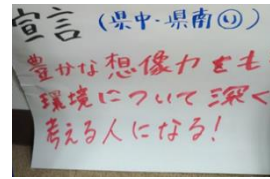 宣言 (県中・県南㋷)
豊かな想像力をも
環境について深く
考える人になる!